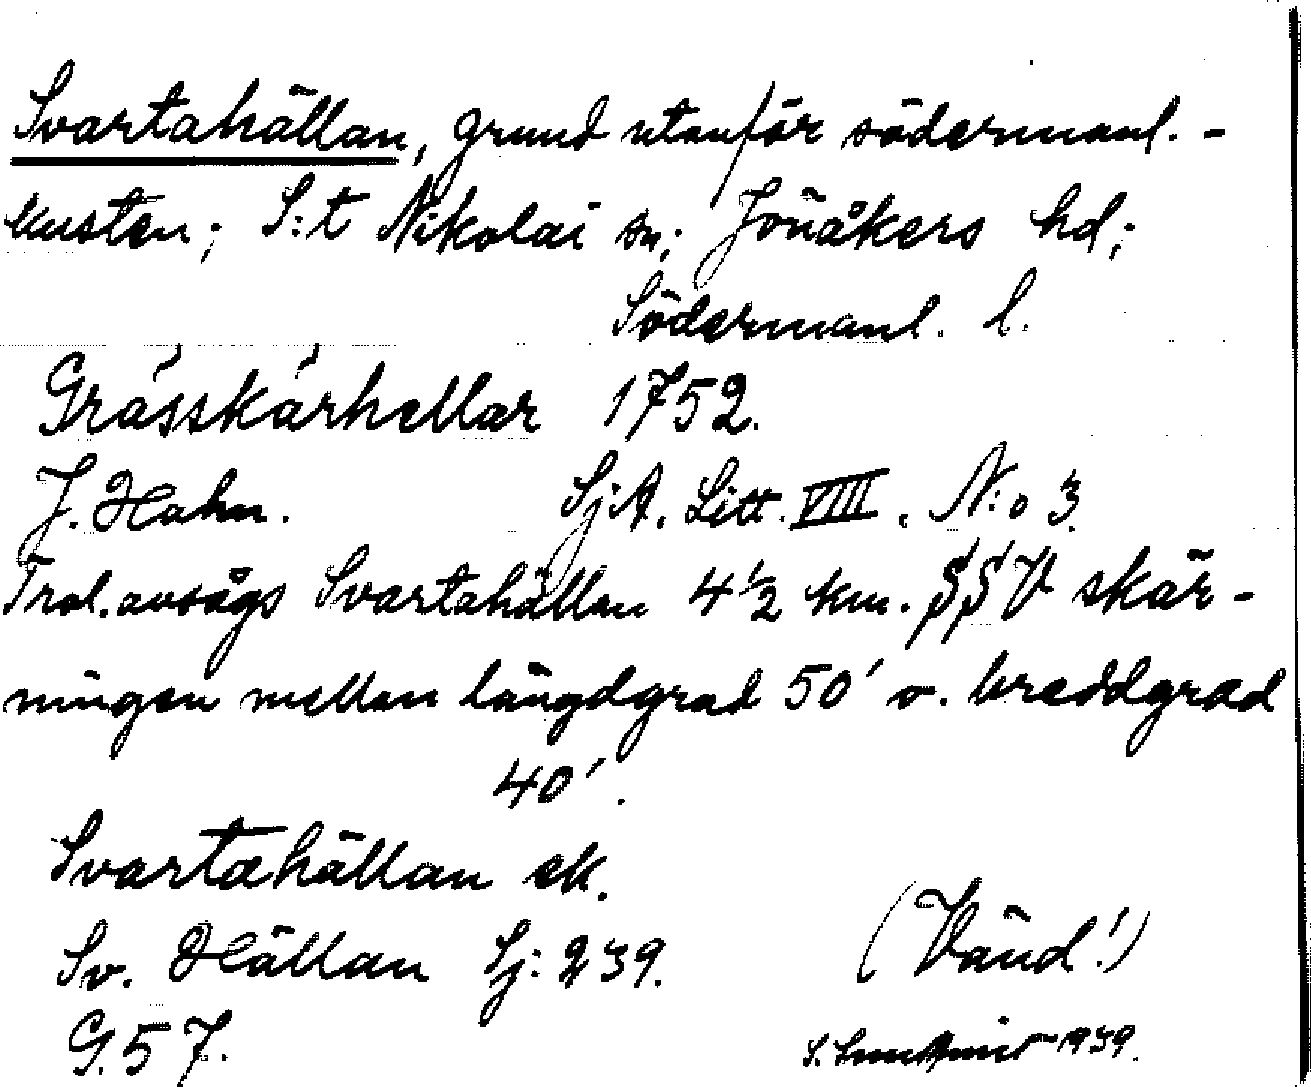 Svartahällan, grund utanför södermanl.-
kusten; S:t Nikolai sn; Jönåkers hd;
Södermanl. l.
Grásskárhellar 1752.
J. Hahn. Sj:A. Litt. VIIII. N:o 3.
Trol. avsågs Svartahällan 4½ km. SSV skär-
ningen mellan längdgrad 50′ o. breddgrad
40′.
Svartahällan ek.
Sv. Hällan Sj: 239.
G. 57.
(Vänd!)
1939.